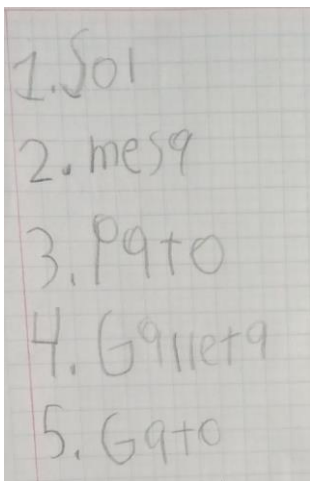 1. Sol
2. mesa
3. Pato
4. Galleta
5. Gato